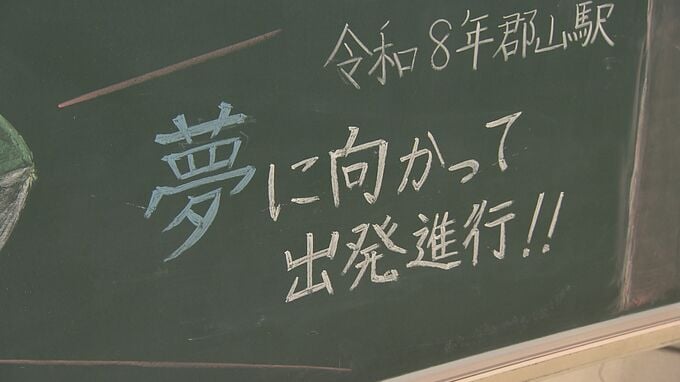 令和8年郡山駅
夢に向かって
出発進行!!